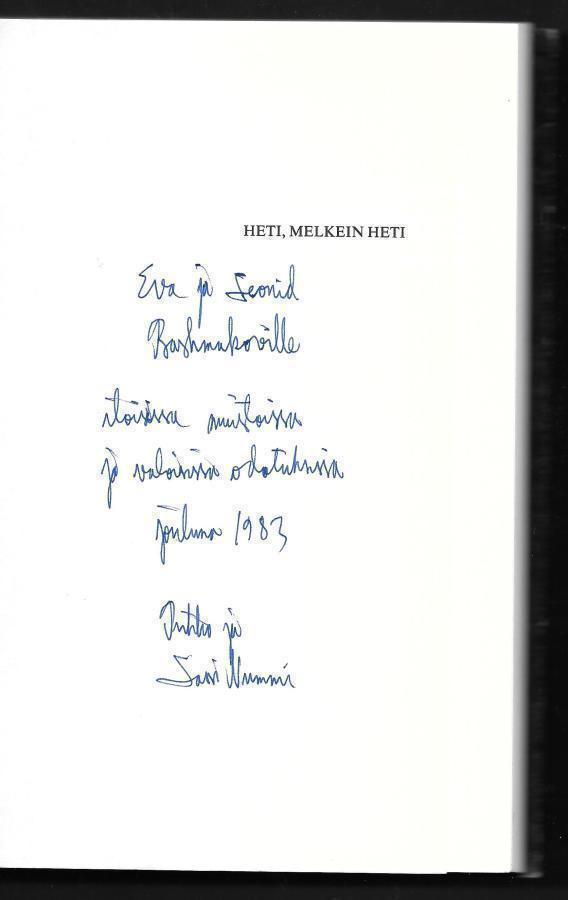 HETI, MELKEIN HETI
Eva ja Leonid
Bashmakoville
iloisissa muistoissa
ja valoisissa odotuksissa
jouluna 1983
Juhko ja
Sari Nummi